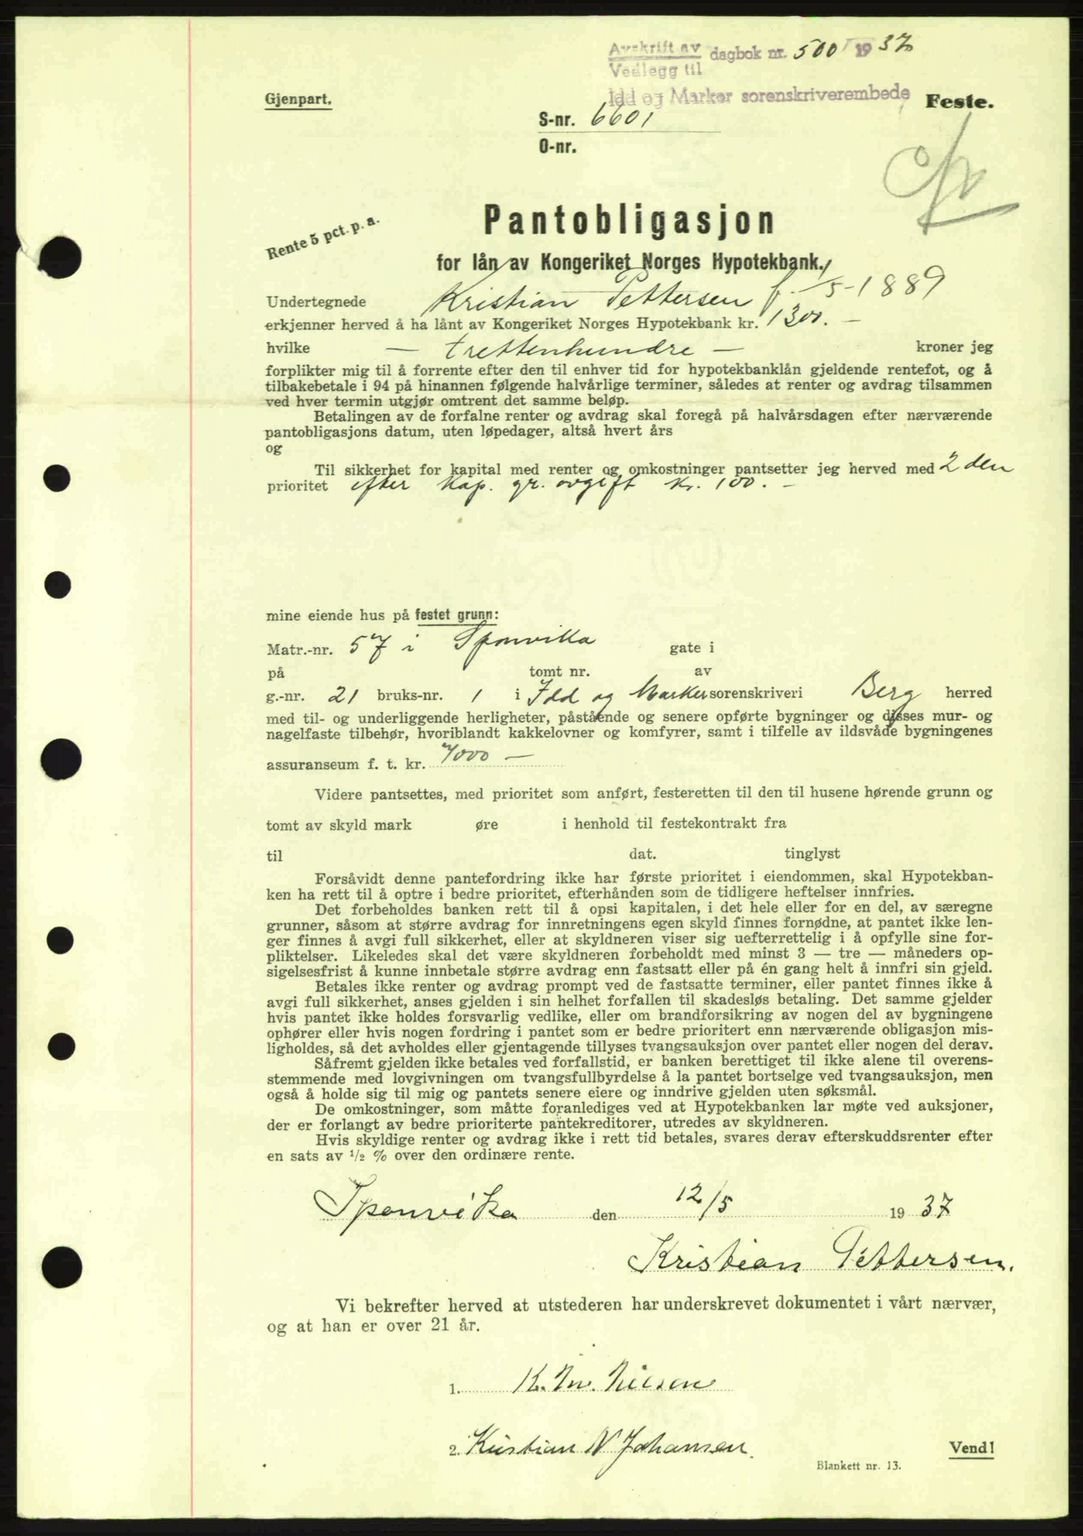 Avskrift av dagbok nr. 500 1937
Vedlegg til
Idd og Marker sorenskriverembede
Gjenpart.
Feste.
S-nr. 6601
O-nr.
Rente 5 pct. p. a.
Pantobligasjon
for lån av Kongeriket Norges Hypotekbank.
Undertegnede Kristian Pettersen f. 1/5-1889
erkjenner herved å ha lånt av Kongeriket Norges Hypotekbank kr. 1300.-
hvilke - trettenhundre - kroner jeg
forplikter mig til å forrente efter den til enhver tid for hypotekbanklån gjeldende rentefot, og å
tilbakebetale i 94 på hinannen følgende halvårlige terminer, således at renter og avdrag tilsammen
ved hver termin utgjør omtrent det samme beløp.
Betalingen av de forfalne renter og avdrag skal foregå på halvårsdagen efter nærværende
pantobligasjons datum, uten løpedager, altså hvert års
og
Til sikkerhet for kapital med renter og omkostninger pantsetter jeg herved med 2den
prioritet efter kap. gr. avgift kr. 100.-
mine eiende hus på festet grunn:
Matr.-nr. 57 i Sponvika gate i
på tomt nr. av
g.-nr. 21 bruks-nr. 1 i Idd og Marker sorenskriveri Berg herred
med til- og underliggende herligheter, påstående og senere opførte bygninger og disses mur- og
nagelfaste tilbehør, hvoriblandt kakkelovner og komfyrer, samt i tilfelle av ildsvåde bygningenes
assuranseum f. t. kr. 7000 -
Videre pantsettes, med prioritet som anført, festeretten til den til husene hørende grunn og
tomt av skyld mark øre i henhold til festekontrakt fra
til dat. tinglyst
Forsåvidt denne pantefordring ikke har første prioritet i eiendommen, skal Hypotekban-
ken ha rett til å optre i bedre prioritet, efterhånden som de tidligere heftelser innfries.
Det forbeholdes banken rett til å opsi kapitalen, i det hele eller for en del, av særegne
grunner, såsom at større avdrag for innretningens egen skyld finnes fornødne, at pantet ikke len-
ger finnes å avgi full sikkerhet, eller at skyldneren viser sig uefterrettelig i å opfylle sine for-
pliktelser. Likeledes skal det være skyldneren forbeholdt med minst 3 — tre — måneders op-
sigelsesfrist å kunne innbetale større avdrag enn fastsatt eller på én gang helt å innfri sin gjeld.
Betales ikke renter og avdrag prompt ved de fastsatte terminer, eller pantet finnes ikke å
avgi full sikkerhet, anses gjelden i sin helhet forfallen til skadesløs betaling. Det samme gjelder
hvis pantet ikke holdes forsvarlig vedlike, eller om brandforsikring av nogen del av bygningene
ophører eller hvis nogen fordring i pantet som er bedre prioritert enn nærværende obligasjon mis-
ligholdes, så det avholdes eller gjentagende tillyses tvangsauksjon over pantet eller nogen del derav.
Såfremt gjelden ikke betales ved forfallstid, er banken berettiget til ikke alene til overens-
stemmende med lovgivningen om tvangsfullbyrdelse å la pantet bortselge ved tvangsauksjon, men
også å holde sig til mig og pantets senere eiere og inndrive gjelden uten søksmål.
De omkostninger, som måtte foranlediges ved at Hypotekbanken lar møte ved auksjoner,
der er forlangt av bedre prioriterte pantekreditorer, utredes av skyldneren.
Hvis skyldige renter og avdrag ikke i rett tid betales, svares derav efterskuddsrenter efter
en sats av 1/2 % over den ordinære rente.
Sponvika den 12/5 1937
Kristian Pettersen.
Vi bekrefter herved at utstederen har underskrevet dokumentet i vårt nærvær,
og at han er over 21 år.
1. K. Nielsen
2. Kristian N Johansen.
Vend!
Blankett nr. 13.